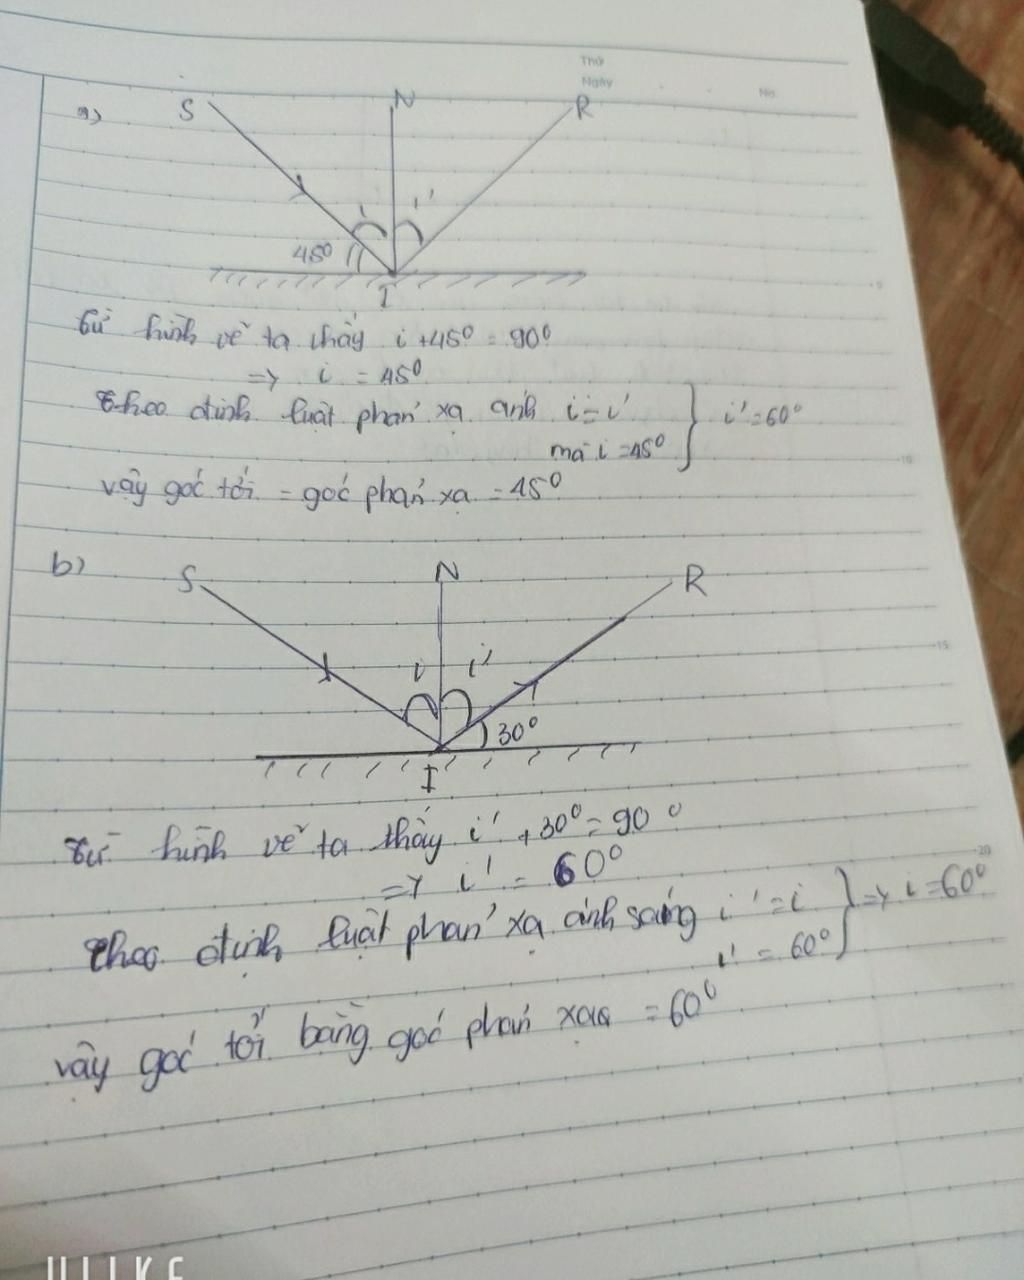 Thứ
Ngày
No.
a)
S N R
i i'
45°
I
từ hình vẽ ta thấy i + 45° = 90°
=> i = 45°
theo định luật phản xạ ánh i = i' } i' = 60°
mà i = 45°
vậy góc tới = góc phản xạ = 45°
b)
S N R
i i'
30°
I
từ hình vẽ ta thấy i' + 30° = 90°
=> i' = 60°
theo định luật phản xạ ánh sáng i' = i } => i = 60°
i' = 60°
vậy góc tới bằng góc phản xạ = 60°
5
10
15
20